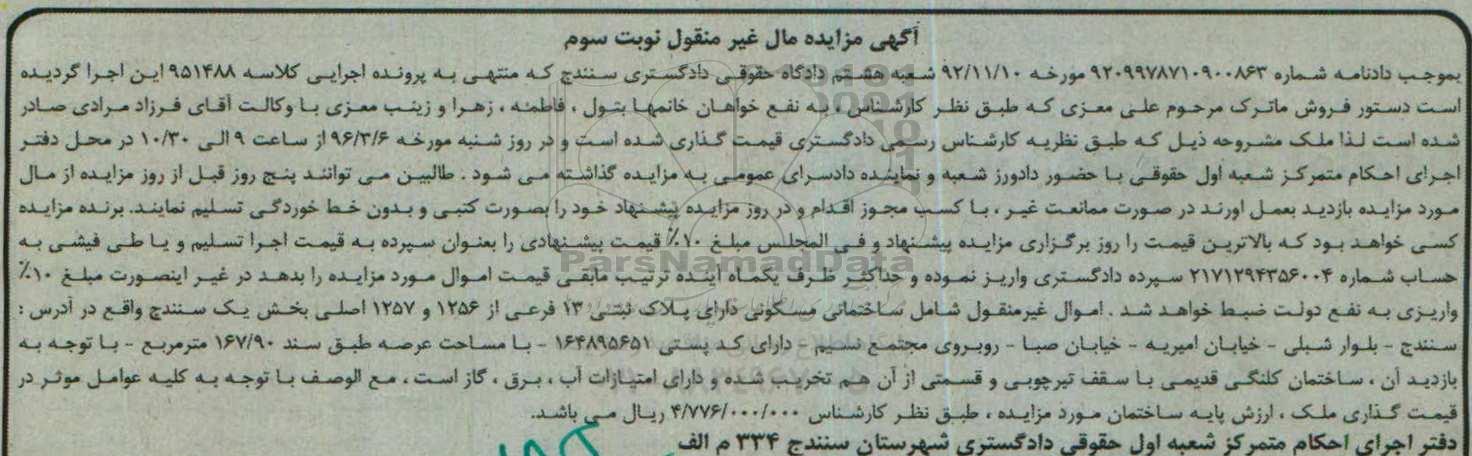 آگهی مزایده مال غیر منقول نوبت سوم
بموجب دادنامه شماره ۹۲۰۹۹۷۸۷۱۰۹۰۰۸۶۳ مورخه ۹۲/۱۱/۱۰ شعبه هشتم دادگاه حقوقی دادگستری سنندج که منتهی به پرونده اجرایی کلاسه ۹۵۱۴۸۸ این اجرا گردیده
است دستور فروش ماترک مرحوم علی معزی که طبق نظر کارشناس ، به نفع خواهان خانمها بتول ، فاطمه ، زهرا و زینب معزی با وکالت آقای فرزاد مرادی صادر
شده است لذا ملک مشروحه ذیل که طبق نظریه کارشناس رسمی دادگستری قیمت گذاری شده است و در روز شنبه مورخه ۹۶/۳/۶ از ساعت ۹ الی ۱۰/۳۰ در محل دفتر
اجرای احکام متمرکز شعبه اول حقوقی با حضور دادورز شعبه و نماینده دادسرای عمومی به مزایده گذاشته می شود . طالبین می توانند پنج روز قبل از روز مزایده از مال
مورد مزایده بازدید بعمل اورند در صورت ممانعت غیر ، با کسب مجوز اقدام و در روز مزایده پیشنهاد خود را بصورت کتبی و بدون خط خوردگی تسلیم نمایند. برنده مزایده
کسی خواهد بود که بالاترین قیمت را روز برگزاری مزایده پیشنهاد و فی المجلس مبلغ ۱۰٪ قیمت پیشنهادی را بعنوان سپرده به قیمت اجرا تسلیم و یا طی فیشی به
ParsNamadData
حساب شماره ۲۱۷۱۲۹۴۳۵۶۰۰۴ سپرده دادگستری واریز نموده و حداکثر ظرف یکماه اینده ترتیب مابقی قیمت اموال مورد مزایده را بدهد در غیر اینصورت مبلغ ۱۰٪
واریزی به نفع دولت ضبط خواهد شد . اموال غیرمنقول شامل ساختمانی مسکونی دارای پلاک ثبتی ۱۳ فرعی از ۱۲۵۶ و ۱۲۵۷ اصلی بخش یک سنندج واقع در آدرس :
سنندج - بلوار شبلی - خیابان امیریه - خیابان صبا - روبروی مجتمع نسیم - دارای کد پستی ۱۶۴۸۹۵۶۵۱ - با مساحت عرصه طبق سند ۱۶۷/۹۰ مترمربع - با توجه به
بازدید آن ، ساختمان کلنگی قدیمی با سقف تیرچوبی و قسمتی از آن هم تخریب شده و دارای امتیازات آب ، برق ، گاز است ، مع الوصف با توجه به کلیه عوامل موثر در
قیمت گذاری ملک ، ارزش پایه ساختمان مورد مزایده ، طبق نظر کارشناس ۴/۷۷۶/۰۰۰/۰۰۰ ریال می باشد.
دفتر اجرای احکام متمرکز شعبه اول حقوقی دادگستری شهرستان سنندج ۳۳۴ م الف